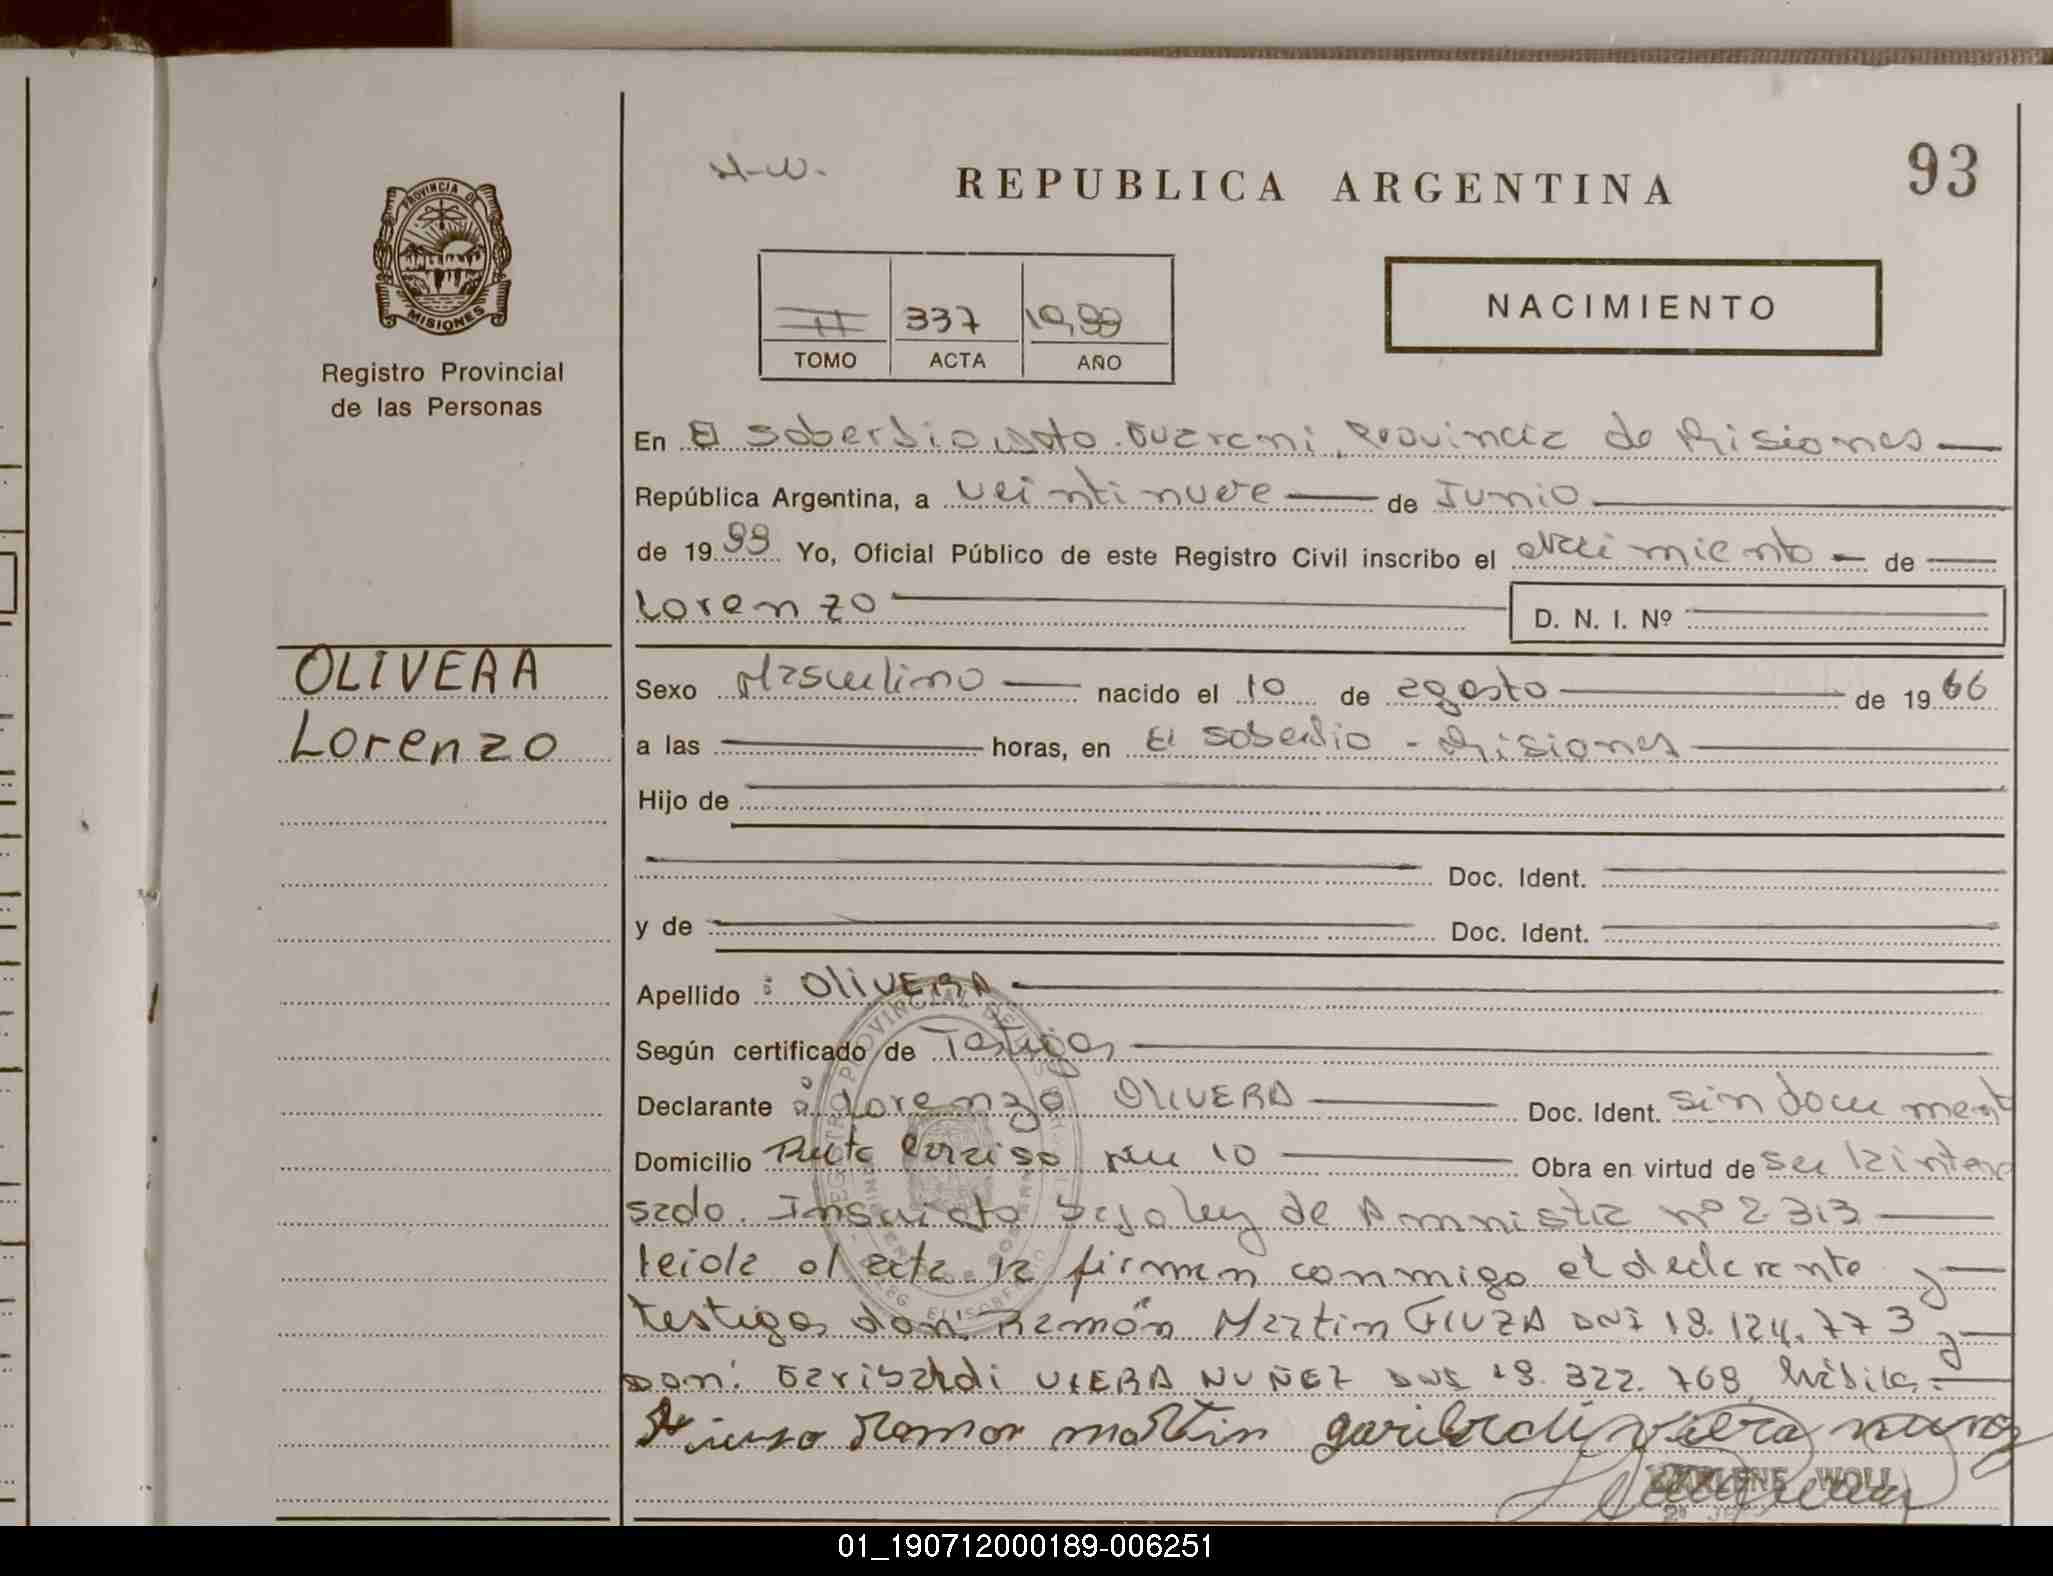 93
H-W.
REPUBLICA ARGENTINA
PROVINCIA DE
MISIONES
Registro Provincial
de las Personas
NACIMIENTO
II 337 1999
TOMO ACTA AÑO
En El Soberbio, Dpto. Guarani, Provincia de Misiones
República Argentina, a veintinueve de Junio
de 1999 Yo, Oficial Público de este Registro Civil inscribo el Nacimiento de
Lorenzo D. N. I. Nº
OLIVERA
Lorenzo
Sexo Masculino nacido el 10 de agosto de 1966
a las horas, en El Soberbio - Misiones
Hijo de
Doc. Ident.
y de Doc. Ident.
Apellido : OLIVERA
Según certificado de Testigos
Declarante : Lorenzo OLIVERA Doc. Ident. sin document
Domicilio Ruta Paraiso km 10 Obra en virtud de ser
sado. Inscripto bajo ley de Amnistia nº 2.313
leida el acta la firman conmigo el declarante y
testigos don: Ramón Martin FIUZA DNI 18.124.773 y
Don: Garibaldi VIERA NUÑEZ DNI 18.322.768, hábiles.
Ramon martin garibaldi viera nunez
MARLENE WOLL
01_190712000189-006251